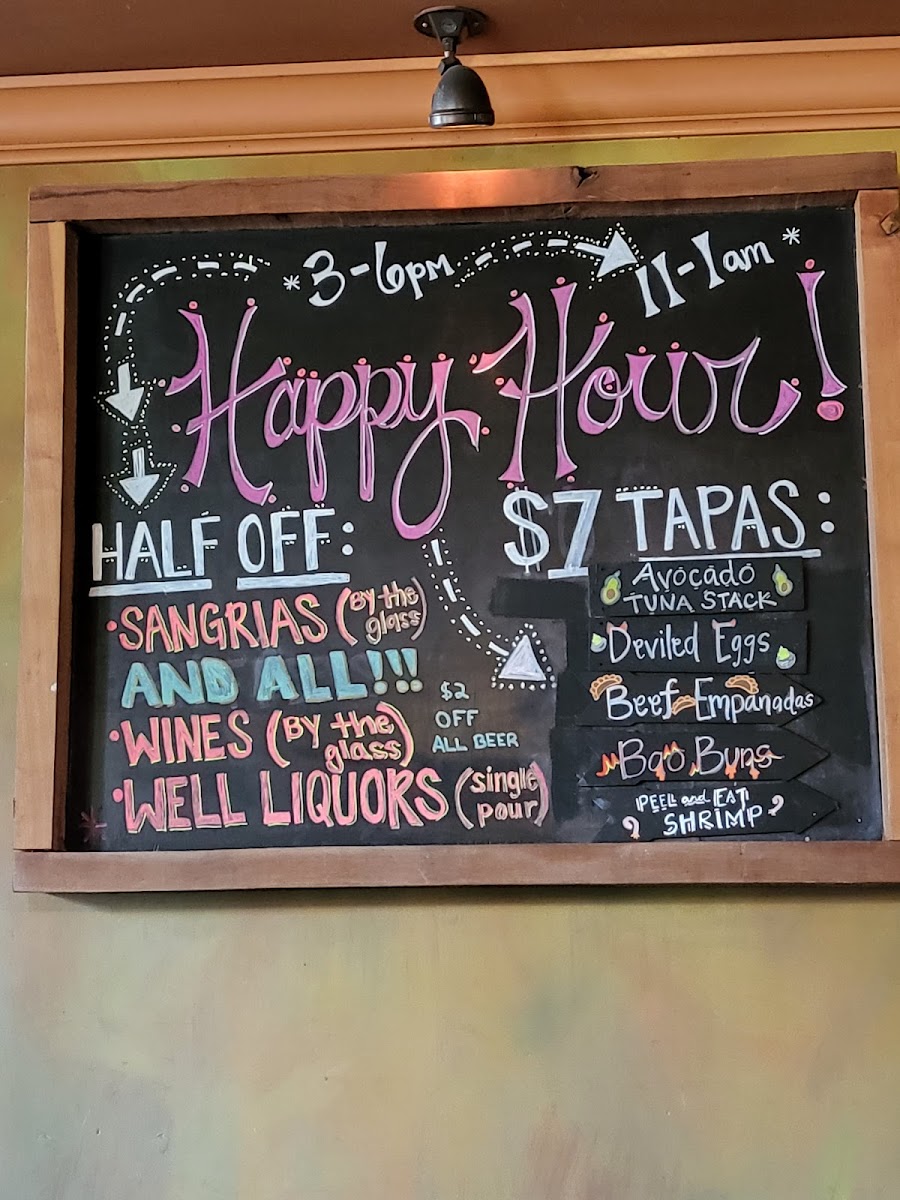 *3-6pm 11-1am*
Happy Hour!
HALF OFF:
• SANGRIAS (By the glass)
AND ALL!!!
• WINES (By the glass)
• WELL LIQUORS (single pour)
$2
OFF
ALL BEER
$7 TAPAS:
Avocado
TUNA STACK
Deviled Eggs
Beef Empanadas
Bao Buns
PEEL and EAT
SHRIMP